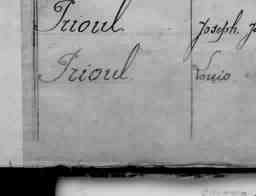 Trioul Joseph J
Trioul Louis